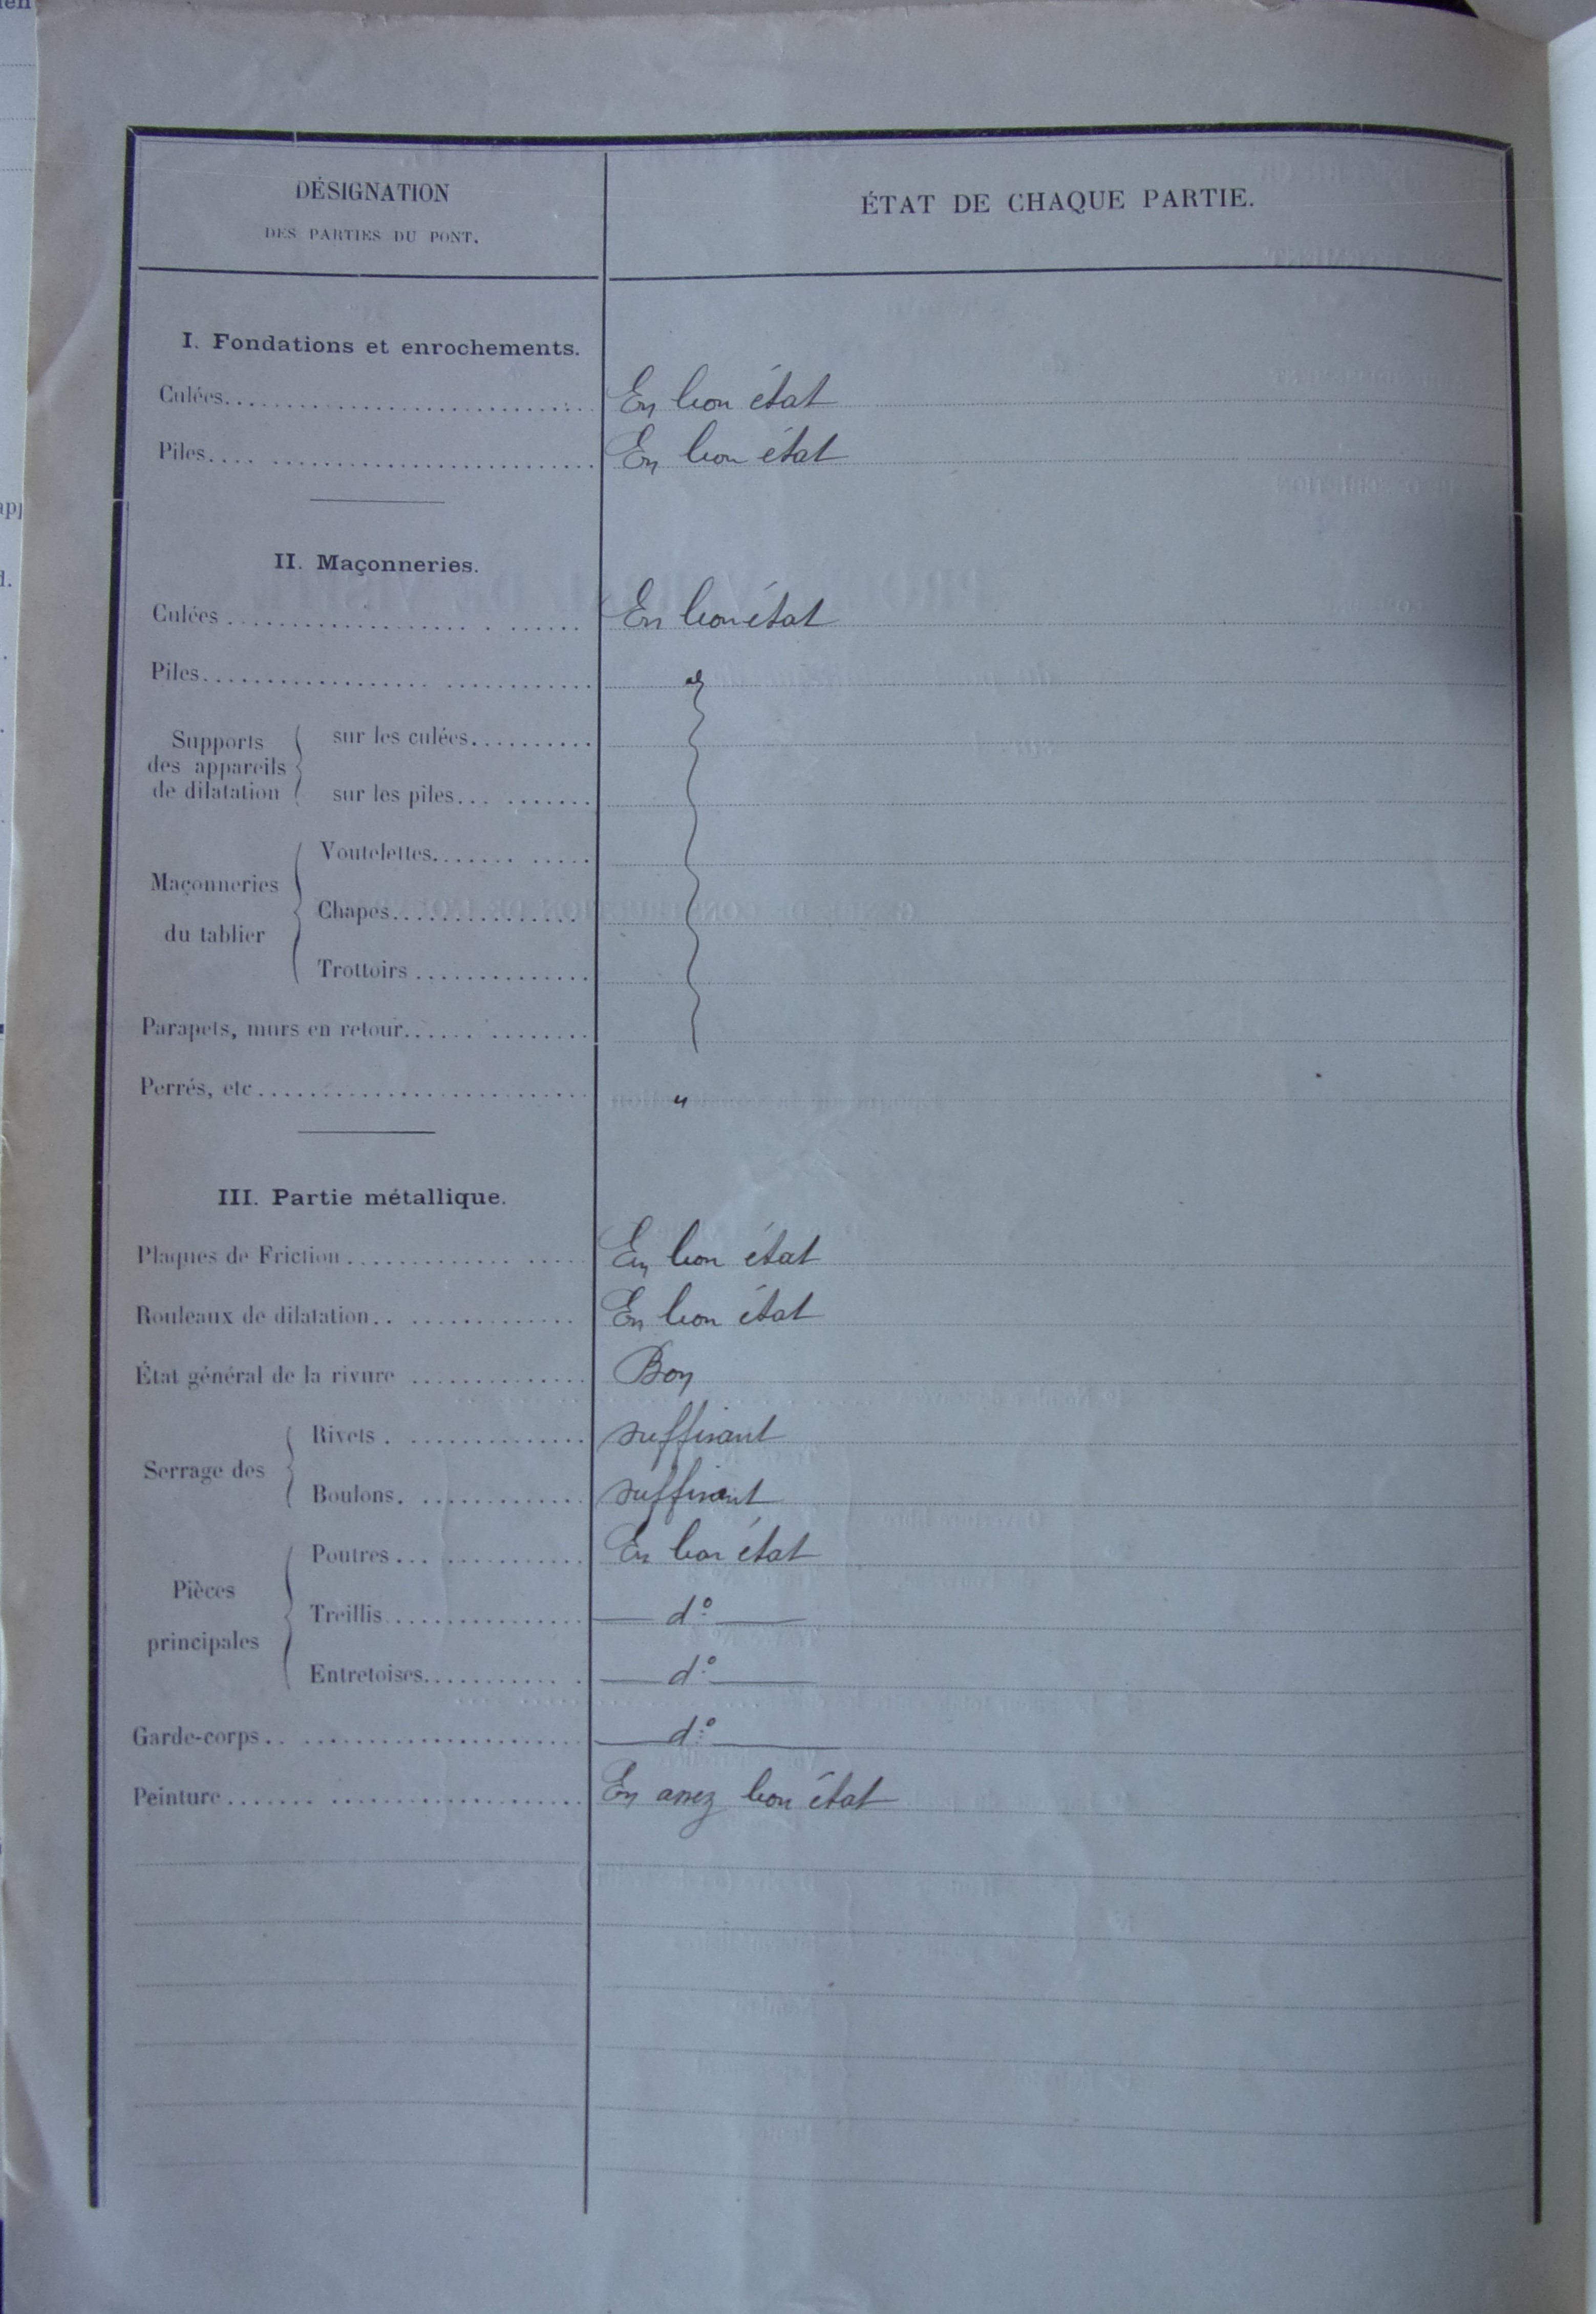 DÉSIGNATION
DES PARTIES DU PONT.
ÉTAT DE CHAQUE PARTIE.
I. Fondations et enrochements.
Culées En bon état
Piles En bon état
II. Maçonneries.
Culées En bon état
Piles
Supports des appareils de dilatation
sur les culées
sur les piles
Maçonneries du tablier
Voutelettes
Chapes
Trottoirs
Parapets, murs en retour
Perrés, etc "
III. Partie métallique.
Plaques de Friction En bon état
Rouleaux de dilatation En bon état
État général de la rivure Bon
Serrage des
Rivets suffisant
Boulons suffisant
Pièces principales
Poutres En bon état
Treillis — d° —
Entretoises — d° —
Garde-corps — d° —
Peinture En assez bon état